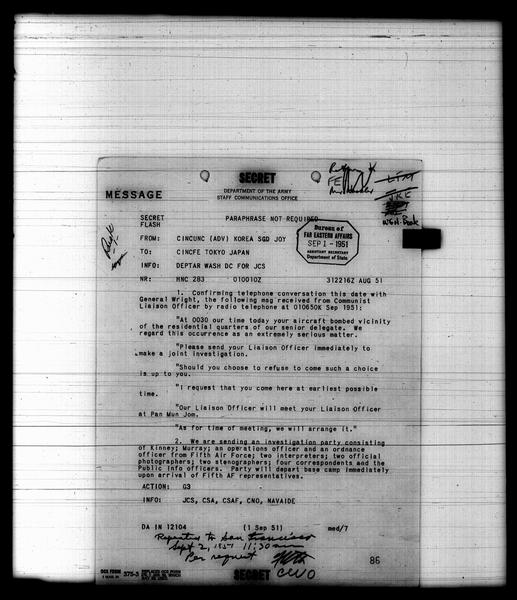 SECRET
DEPARTMENT OF THE ARMY
STAFF COMMUNICATIONS OFFICE
MESSAGE
SECRET PARAPHRASE NOT REQUIRED
FLASH
Bureau of
FAR EASTERN AFFAIRS
SEP 1 - 1951
ASSISTANT SECRETARY
Department of State
FROM: CINCUNC (ADV) KOREA SGD JOY
TO: CINCFE TOKYO JAPAN
INFO: DEPTAR WASH DC FOR JCS
NR: HNC 283 010010Z 312216Z AUG 51
1. Confirming telephone conversation this date with
General Wright, the following msg received from Communist
Liaison Officer by radio telephone at 010650K Sep 1951:
"At 0030 our time today your aircraft bombed vicinity
of the residential quarters of our senior delegate. We
regard this occurrence as an extremely serious matter.
"Please send your Liaison Officer immediately to
make a joint investigation.
"Should you choose to refuse to come such a choice
is up to you.
"I request that you come here at earliest possible
time.
"Our Liaison Officer will meet your Liaison Officer
at Pan Mun Jom.
"As for time of meeting, we will arrange it."
2. We are sending an investigation party consisting
of Kinney; Murray; an operations officer and an ordnance
officer from Fifth Air Force; two interpreters; two official
photographers; two stenographers; four correspondents and the
Public Info officers. Party will depart base camp immediately
upon arrival of Fifth AF representatives.
ACTION: G3
INFO: JCS, CSA, CSAF, CNO, NAVAIDE
DA IN 12104 (1 Sep 51) med/7
Repeated to San Francisco
Sept 2, 1951 11:30
Per request
CWO
86
OCS FORM 375-3
SECRET